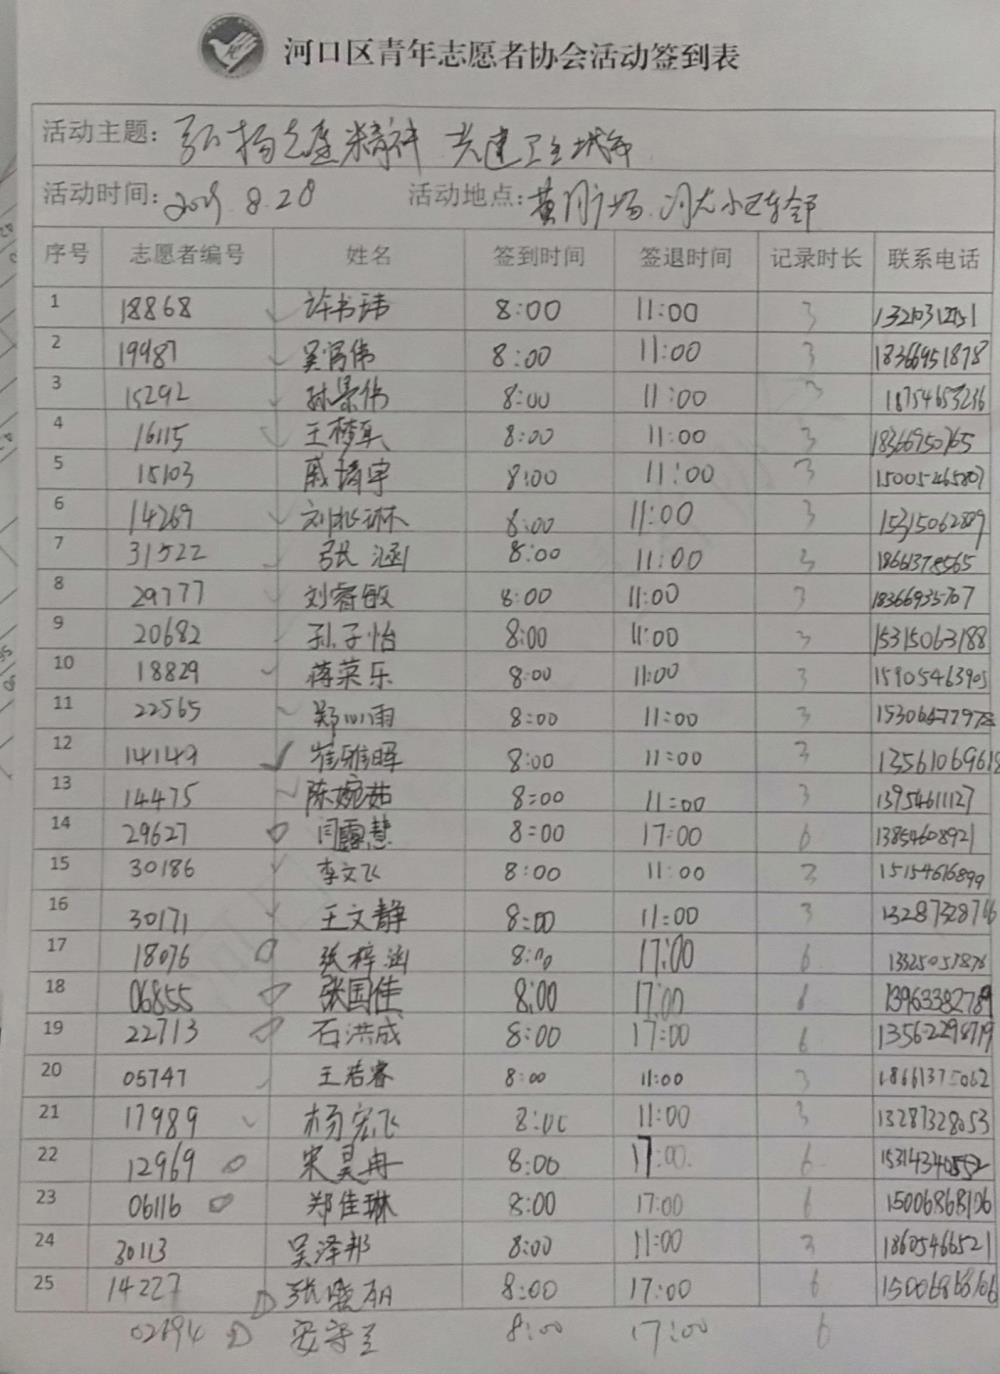 河口区青年志愿者协会活动签到表
活动主题: 弘扬志愿精神 共建卫生城市
活动时间: 2019.8.28 活动地点: 黄河广场、河尤小区东邻
序号 志愿者编号 姓名 签到时间 签退时间 记录时长 联系电话
1 18868 许书玮 8:00 11:00 3
2 19987 8:00 11:00 3 18366951878
3 15292 孙景伟 8:00 11:00 3 18754653236
4 16115 8:00 11:00 3 18366950765
5 15103 戚靖宇 8:00 11:00 3 15005465807
6 14269 8:00 11:00 3 15315062889
7 31522 张涵 8:00 11:00 3 18661378565
8 29777 刘睿敏 8:00 11:00 3 18366935707
9 20682 孙子怡 8:00 11:00 3 15315063188
10 18829 蒋荣乐 8:00 11:00 3 15905463905
11 22565 8:00 11:00 3 15306477978
12 14149 崔雅晖 8:00 11:00 3 13561069618
13 14475 陈婉茹 8:00 11:00 3 13954611127
14 29627 闫露慧 8:00 17:00 6 13854608921
15 30186 李文飞 8:00 11:00 3 15154616899
16 30171 王文静 8:00 11:00 3 13287328716
17 18076 张梓涵 8:00 17:00 6 13325057876
18 06855 张国佳 8:00 17:00 6 13963382789
19 22713 石洪成 8:00 17:00 6 13562298719
20 05747 王若睿 8:00 11:00 3 18661375062
21 17989 杨宏飞 8:00 11:00 3 13287328053
22 12969 宋昊冉 8:00 17:00 6 15314340552
23 06116 郑佳琳 8:00 17:00 6 15006868106
24 30113 吴泽邦 8:00 11:00 3 18605466521
25 14227 8:00 17:00 6 15006868106
02194 安守兰 8:00 17:00 6